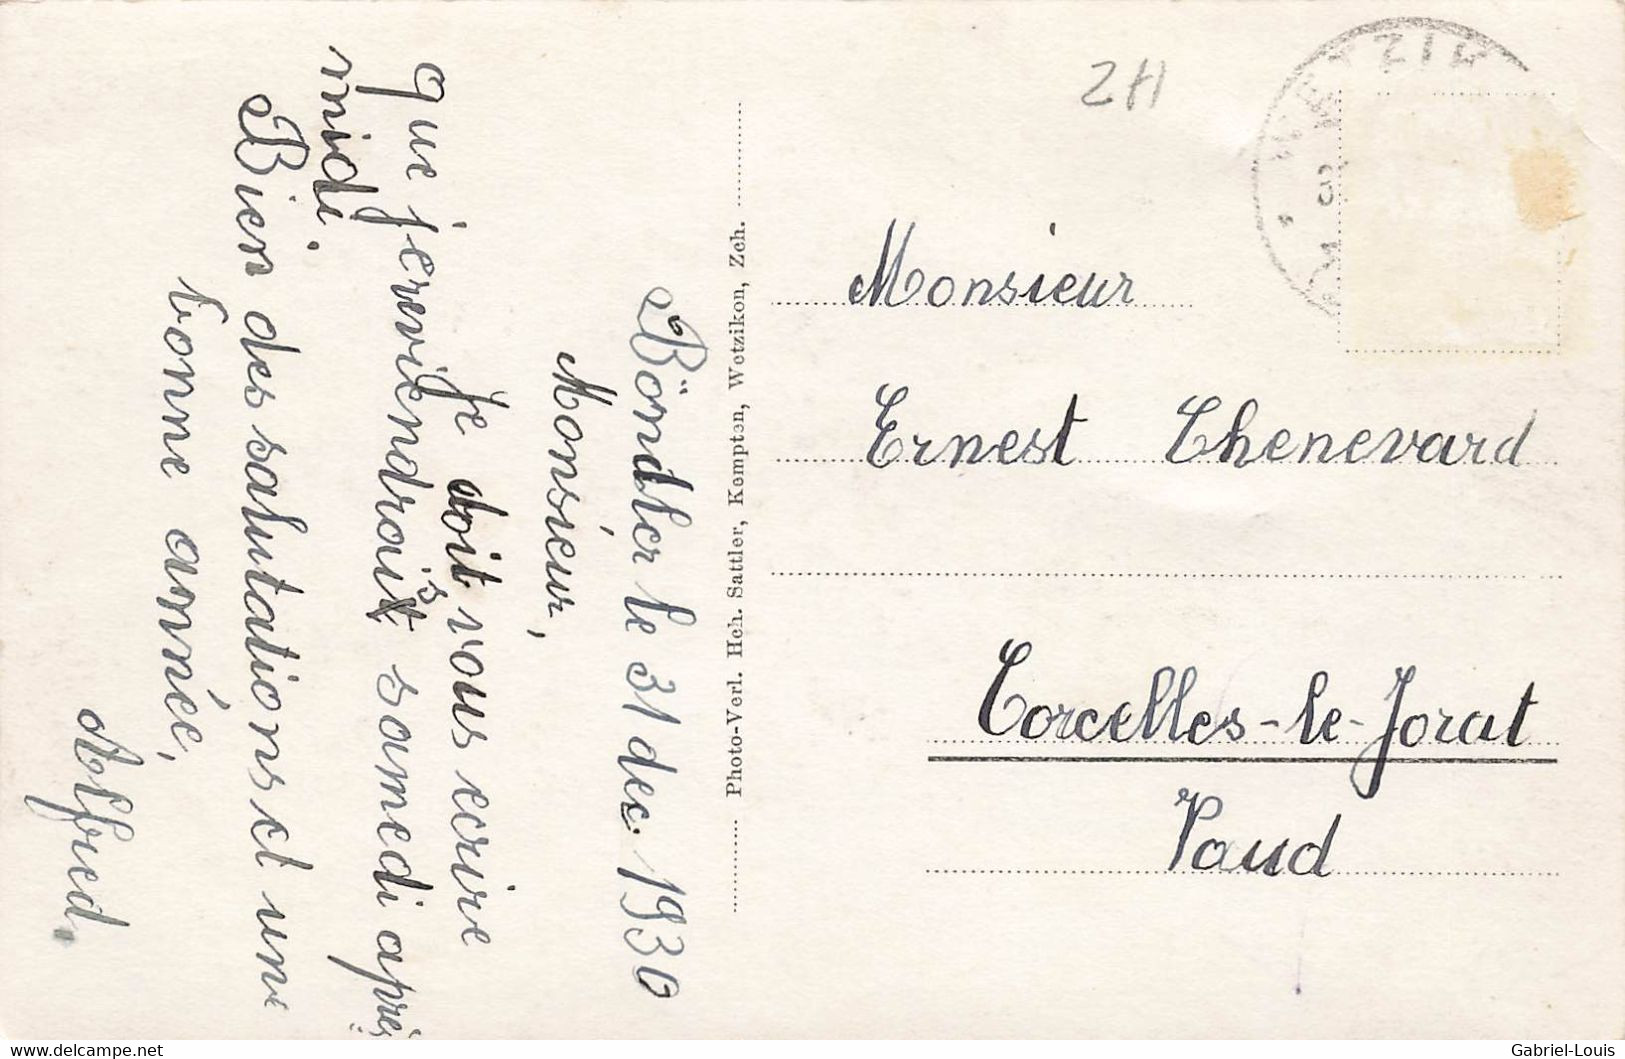 Böndler le 31 dec. 1930
Monsieur,
Je doit vous ecrire
que je reviendrais samedi après
midi.
Bien des salutations et une
bonne année,
Alfred.
Photo-Verl. Hch. Sattler, Kempten, Wetzikon, Zch.
ZH
Monsieur
Ernest Chenevard
Corcelles-le-Jorat
Vaud
delcampe.net
Gabriel-Louis